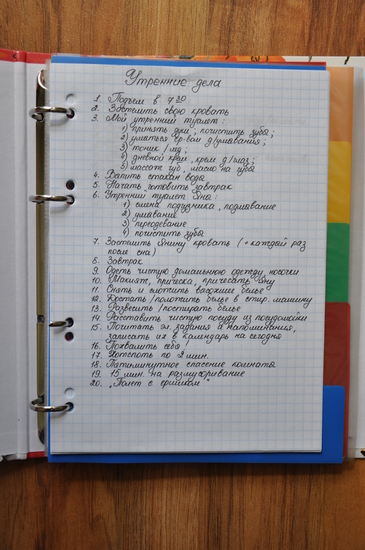 Утренние дела
1. Подъем в 7 30
2. Застелить свою кровать
3. Мой утренний туалет:
1) принять душ, почистить зубы;
2) умыться ср-вом д/умывания;
3) тоник / лед;
4) дневной крем, крем д/глаз;
5) массаж губ, масло на губы
4. Выпить стакан воды
5. Начать готовить завтрак
6. Утренний туалет Яны:
1) смена подгузника, подмывание
2) умывание
3) переодевание
4) почистить зубы
7. Застелить Янину кровать (+ каждый раз
после сна)
8. Завтрак
9. Одеть чистую домашнюю одежду, носочки
10. Макияж, прическа, причесать Яну
11. Снять и сложить высохшее белье
12. Достать/положить белье в стир. машину
13. Развесить/постирать белье
14. Расставить чистую посуду из посудомойки
15. Почитать эл. задания и напоминания,
записать их в календарь на сегодня
16. Похвалить себя!
17. Хотспоты по 2 мин.
18. Пятиминутное спасение комнаты
19. 15 мин. на разхусоривание
20. "Полет с ершиком"